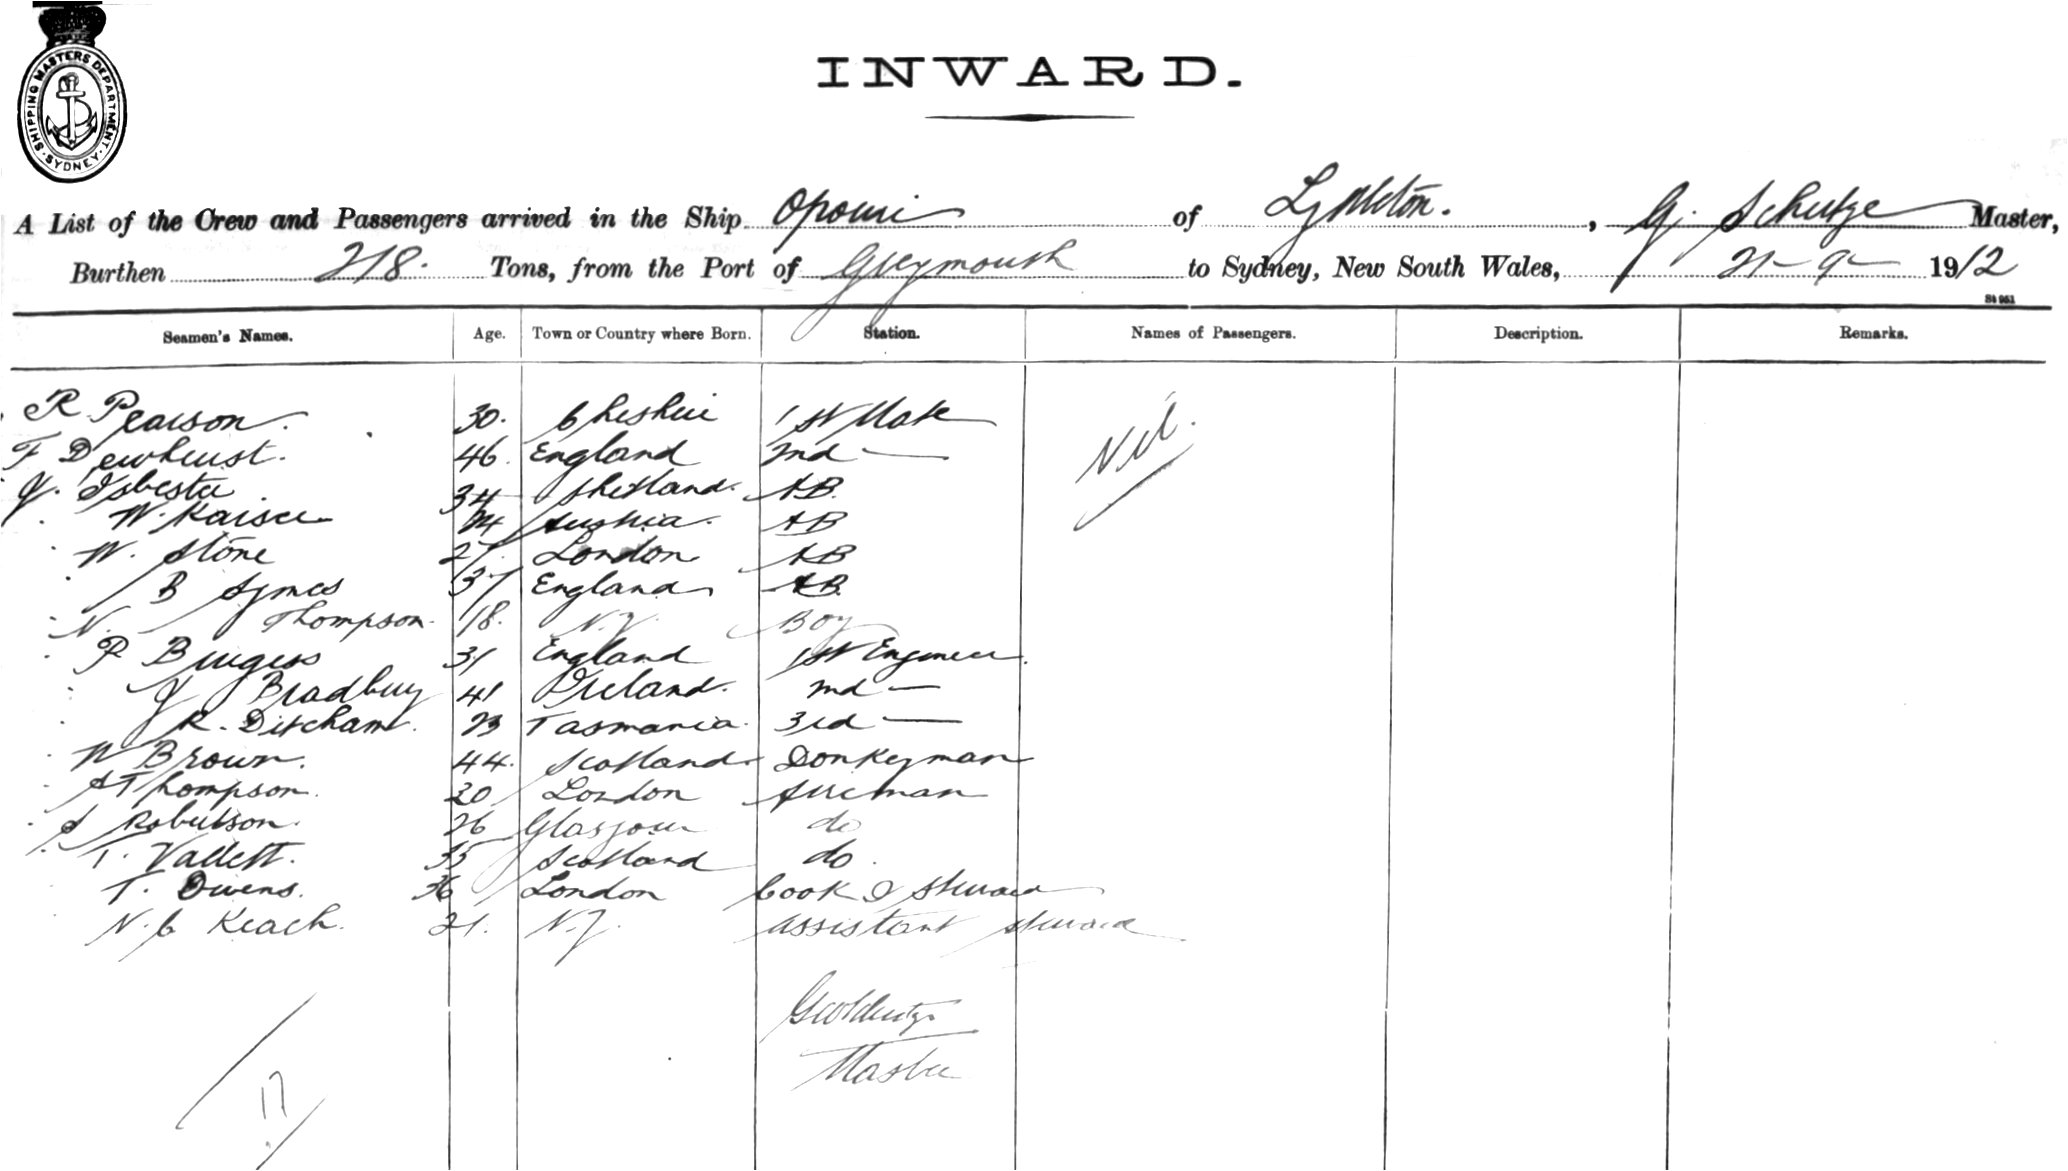 SHIPPING MASTERS DEPARTMENT. SYDNEY.
INWARD.
A List of the Crew and Passengers arrived in the Ship Opouri of Lyttleton. , G. Schutze Master,
Burthen 218. Tons, from the Port of Greymouth to Sydney, New South Wales, 21-9-1912
St 951
Seamen's Names. Age. Town or Country where Born. Station. Names of Passengers. Description. Remarks.
R Pearson. 30. Cheshire 1st Mate Nil.
F Dewhurst. 46. England 2nd —
J. Isbester 34 Shetland. AB.
W. Kaiser 24 Austria. AB
W. Stone 27. London AB
B Symes 37 England AB.
N. Thompson. 18. N.Z. Boy
P Burgess 31 England 1st Engineer.
J Bradbury 41 Ireland. 2nd —
R. Ditcham. 23 Tasmania. 3rd —
W Brown. 44. Scotland Donkeyman
A Thompson. 20 London Fireman
S Robertson. 26 Glasgow do
T. Vallett. 35 Scotland do.
T. Owens. 36 London Cook & Steward
N. C Keach. 21. N.Z. Assistant Steward
G Schutze
Master
17